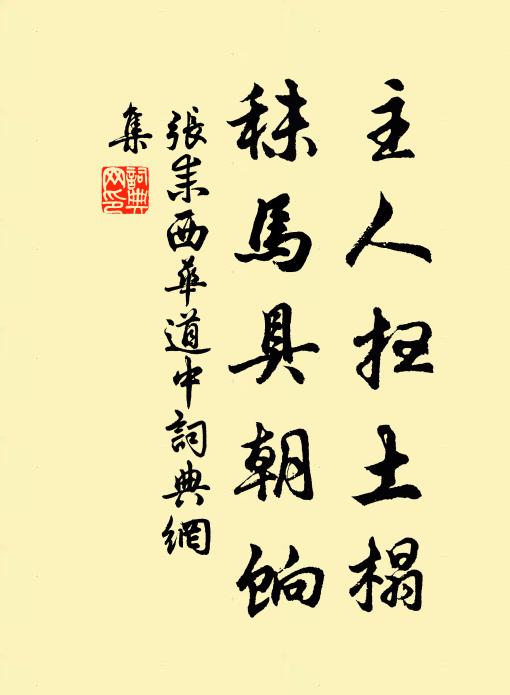 主人扫土榻
秣馬具朝餉
張耒西華道中詞典網
集
詞典网印